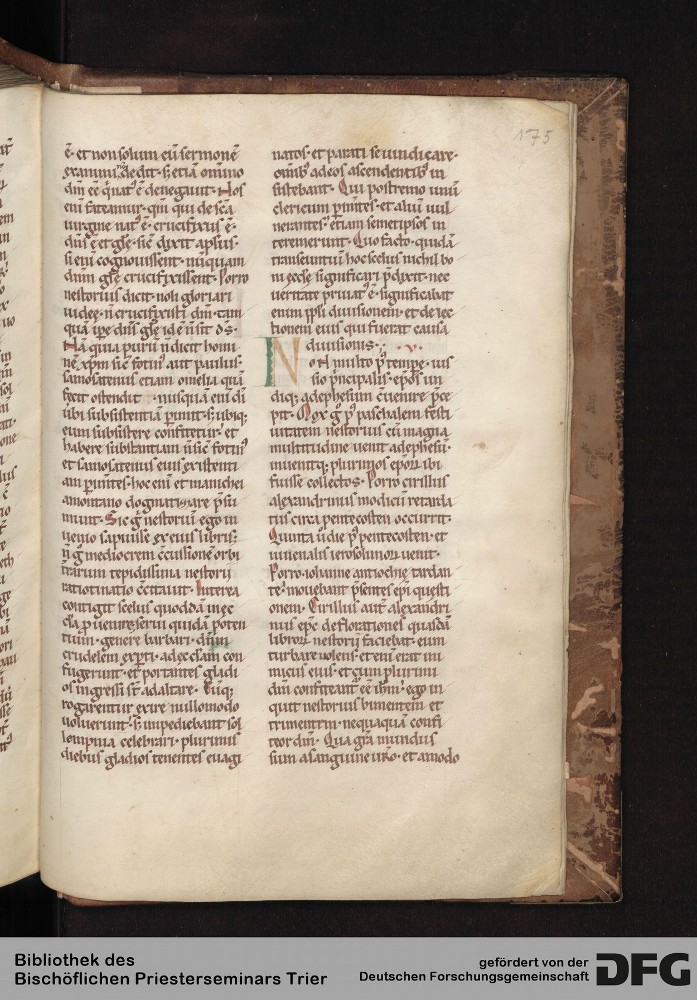 175
ē· et non solum eū sermonē
dm̄ eē q̄ nat᷒ ē denegauit· Nos
enī fateamur· qm̄ qui de scā
uirgine nat᷒ ē· crucifixus ē·
dn̄s ē et głe· sic̄ dixit apłus·
si enī cognouissent· nūquam
dnm̄ głe crucifixissent· Porro
nestorius dicit· noli gloriari
iudee· n̄ crucifixisti dm̄· tam
quā ipe dn̄s głe idē n̄ sit dꝰs·
nē xp̄m sic̄ fotin᷒ aut paulus·
samosatenus etiam omelia quā
fecit ostendit· nusquā enī dī
eum subsistere confitetur· et
habere substantiam n̄ sic̄ fotin᷒
et samosatenus eius existenti
am ꝑimētes· hoc enī et manichei
amontano dogmatizare p̄sū
munt· Sic g̊ nestoriū ego in
uenio sapuisse ex eius libris·
n̄ g̊ mediocrem ōcussionē orbi
terrarum tepidissima nestorii
ratiotinatio ōcitauit· Interea
contigit scelus quoddā in ęc
cła ꝑuenire· serui quidā poten
tium· genere barbari· dn̄m
crudelem exꝑti· ad ęccłam con
fugerunt· et portantes gladi
os ingressi st̄ ad altare· Cūq;
rogarentur exire nullomodo
uoluerunt· s; impediebant sol
lempnia celebrari· plurimis
diebus gladios tenentes euagi
natos· et parati se uindicare·
omīb᷒ ad eos ascendentib᷒ in
sistebant· Qui postremo unū
clericum ꝑimētes· et aliū uul
nerantes· etiam semetipsos in
teremerunt· Quo facto· quidā
transeuntiū hoc scelus nichil bo
ni ęccłe significari p̄dixit· nec
ueritate priuat᷒ ē· significabat
enim ppłi diuisionem· et deiec
tionem eius qui fuerat causa
diuisionis· v·
NON multo p᷒ tempe· ius
sio p̄ncipalis· ep̄os un
diq; ad ephesum ōuenire p̄ce
pit· Mox g̊ p᷒ paschalem festi
uitatem nestorius cū magna
multitudine uenit ad ephesū·
inuenitq; plurimos ep̄oꝝ ibi
fuisse collectos· Porro cirillus
alexandrinus modicū retarda
tus circa pentecosten occurrit·
Quinta ū die p᷒ pentecosten· et
iuuenalis ierosolimoꝝ uenit·
Porro iohanne antiochię tardan
te· mouebant p̄sentes ep̄i questi
onem· Cirillus aut̄ alexandri
nus ep̄c deflorationes quasdā
libroꝝ nestorii faciebat· eum
turbare uolens· et enī erat ini
micus eius· et cum plurimi
dm̄ confiteant᷒ eē ihm̄· ego in
quit nestorius bimentem et
trimentrem nequaquā confi
teor dm̄· Qua gr̄a mundus
sum a sanguine uro· et amodo
Bibliothek des
Bischöflichen Priesterseminars Trier
gefördert von der
Deutschen Forschungsgemeinschaft
DFG